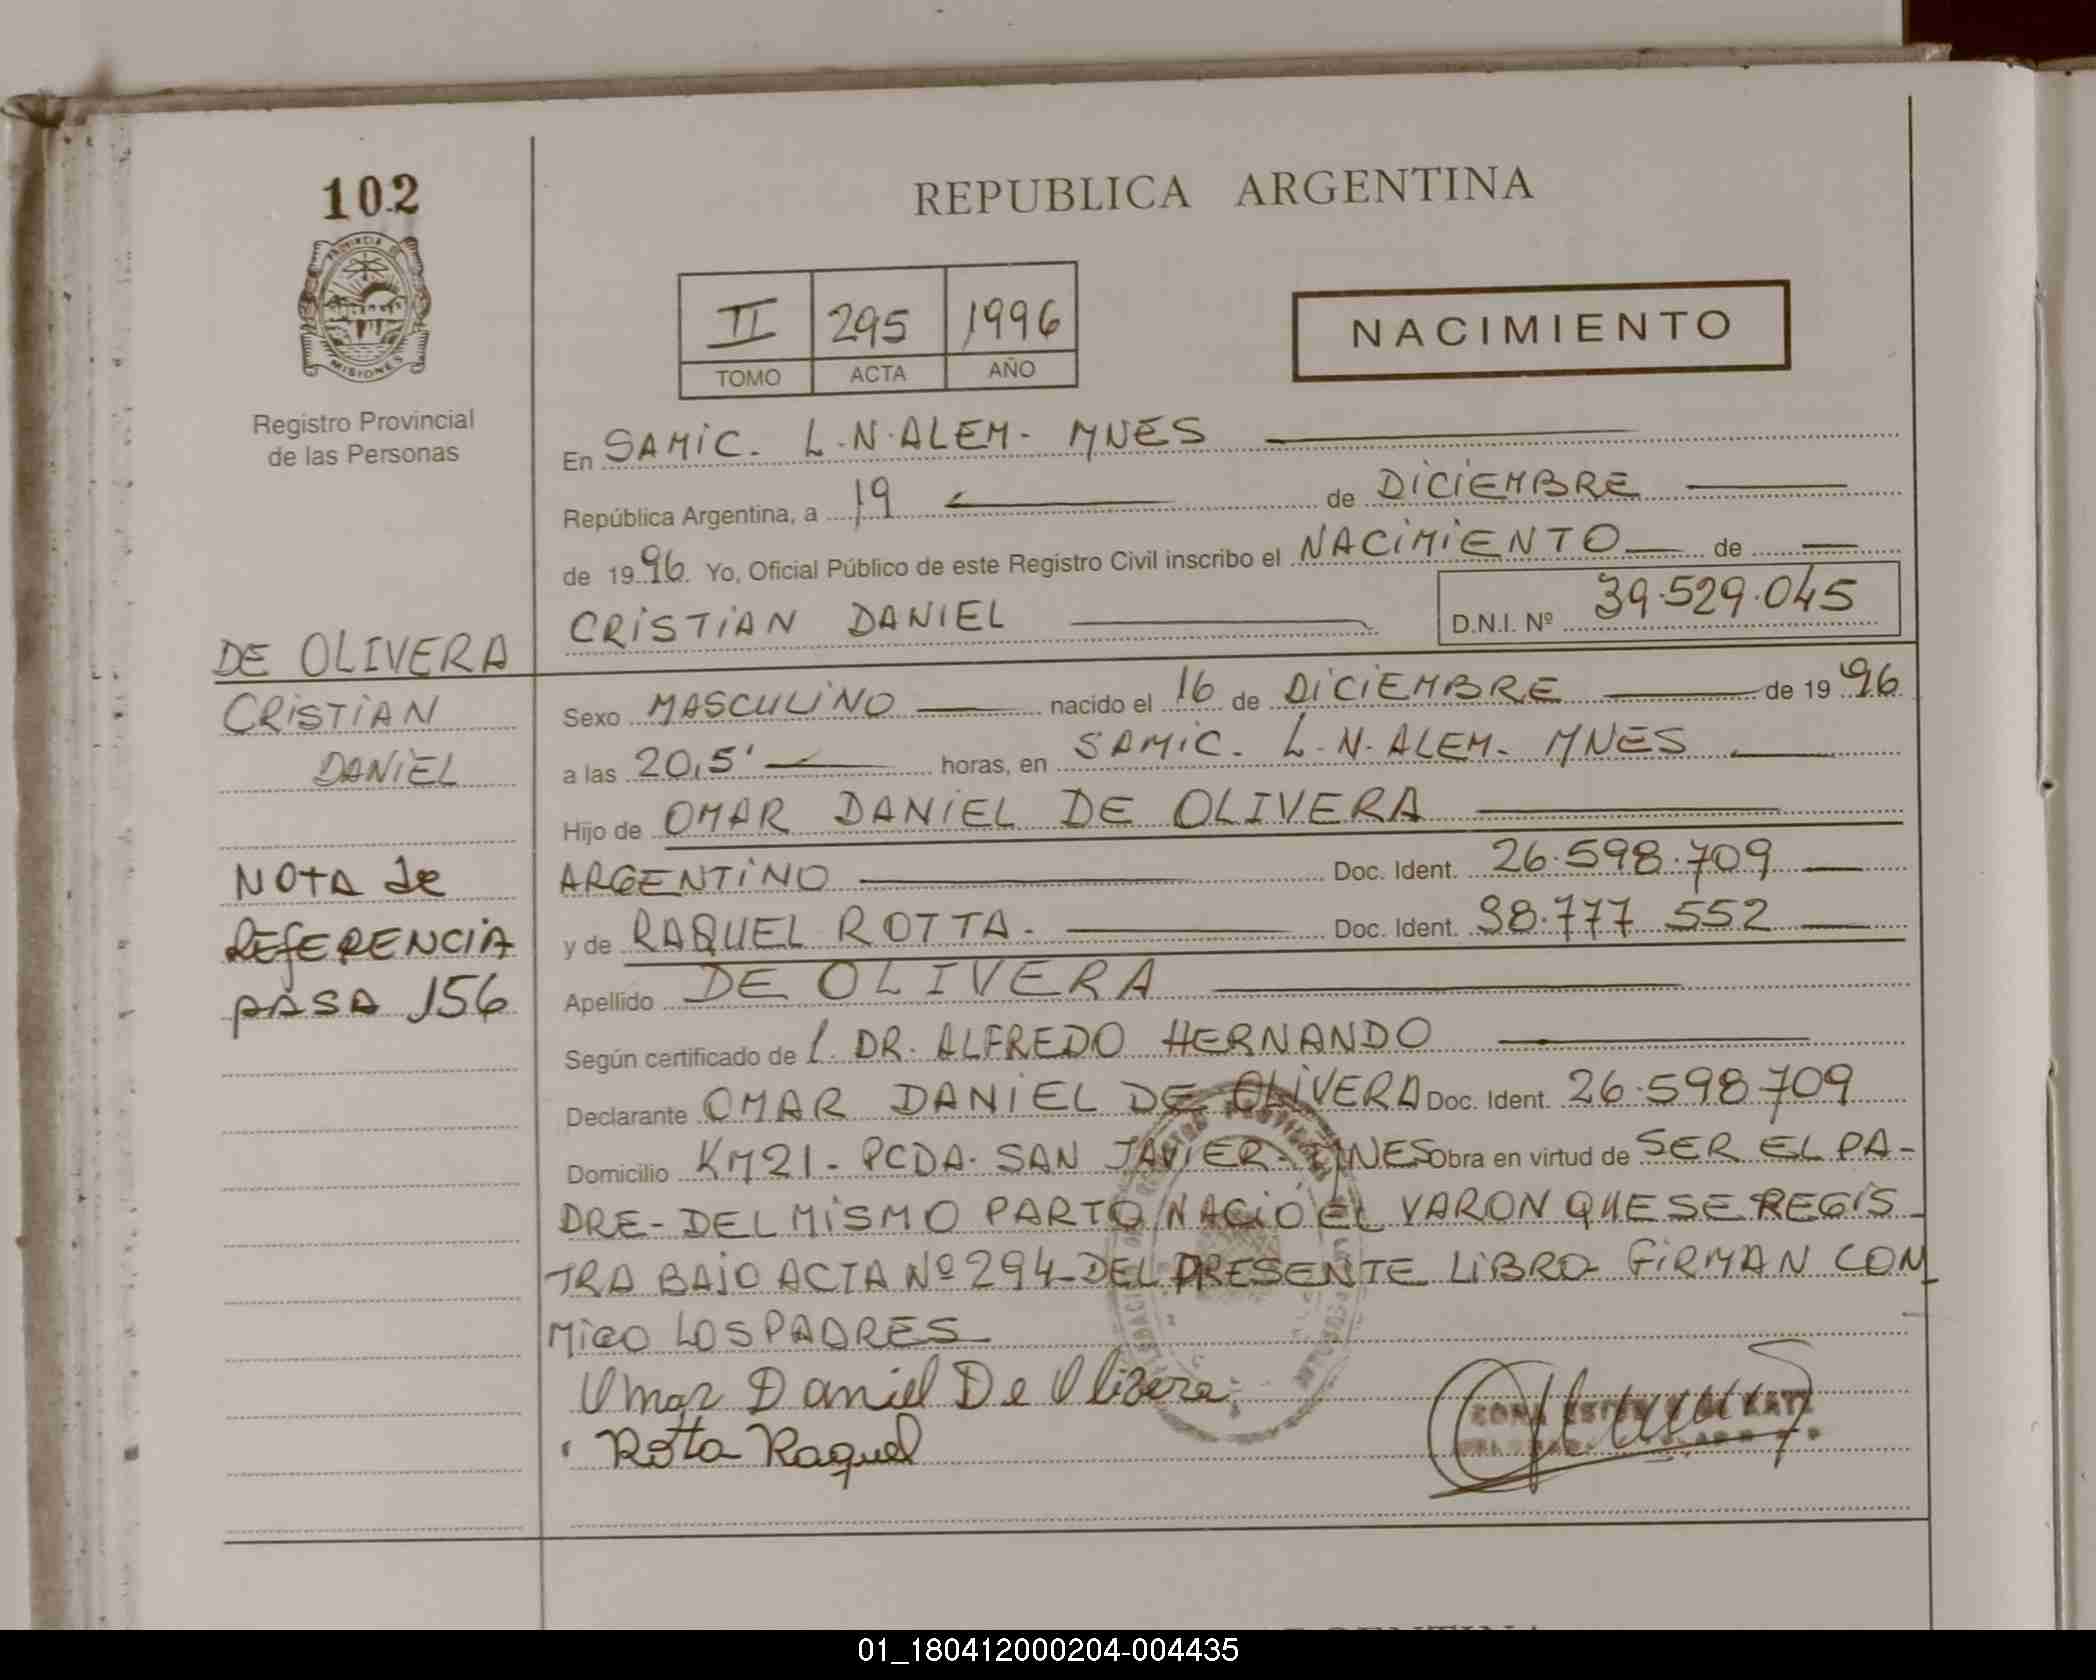 102
PROVINCIA DE
MISIONES
Registro Provincial
de las Personas
REPUBLICA ARGENTINA
II 295 1996
TOMO ACTA AÑO
NACIMIENTO
En SAMIC. L.N.ALEM. MNES
República Argentina, a 19 de DICIEMBRE
de 1996. Yo, Oficial Público de este Registro Civil inscribo el NACIMIENTO de
CRISTIAN DANIEL D.N.I. Nº 39.529.045
DE OLIVERA
CRISTIAN
DANIEL
NOTA de
REFERENCIA
PASA 156
Sexo MASCULINO nacido el 16 de DICIEMBRE de 1996
a las 20,5' horas, en SAMIC. L.N.ALEM. MNES
Hijo de OMAR DANIEL DE OLIVERA
ARGENTINO Doc. Ident. 26.598.709
y de RAQUEL ROTTA. Doc. Ident. 38.777 552
Apellido DE OLIVERA
Según certificado de l. DR. ALFREDO HERNANDO
Declarante OMAR DANIEL DE OLIVERA Doc. Ident. 26.598.709
Domicilio KM21 - PCDA. SAN JAVIER - MNES Obra en virtud de SER EL PA-
DRE - DEL MISMO PARTO NACIO EL VARON QUE SE REGIS-
TRA BAJO ACTA Nº 294 - DEL PRESENTE LIBRO - FIRMAN CON
MIGO LOS PADRES
Omar Daniel De Olivera
Rotta Raquel
01_180412000204-004435